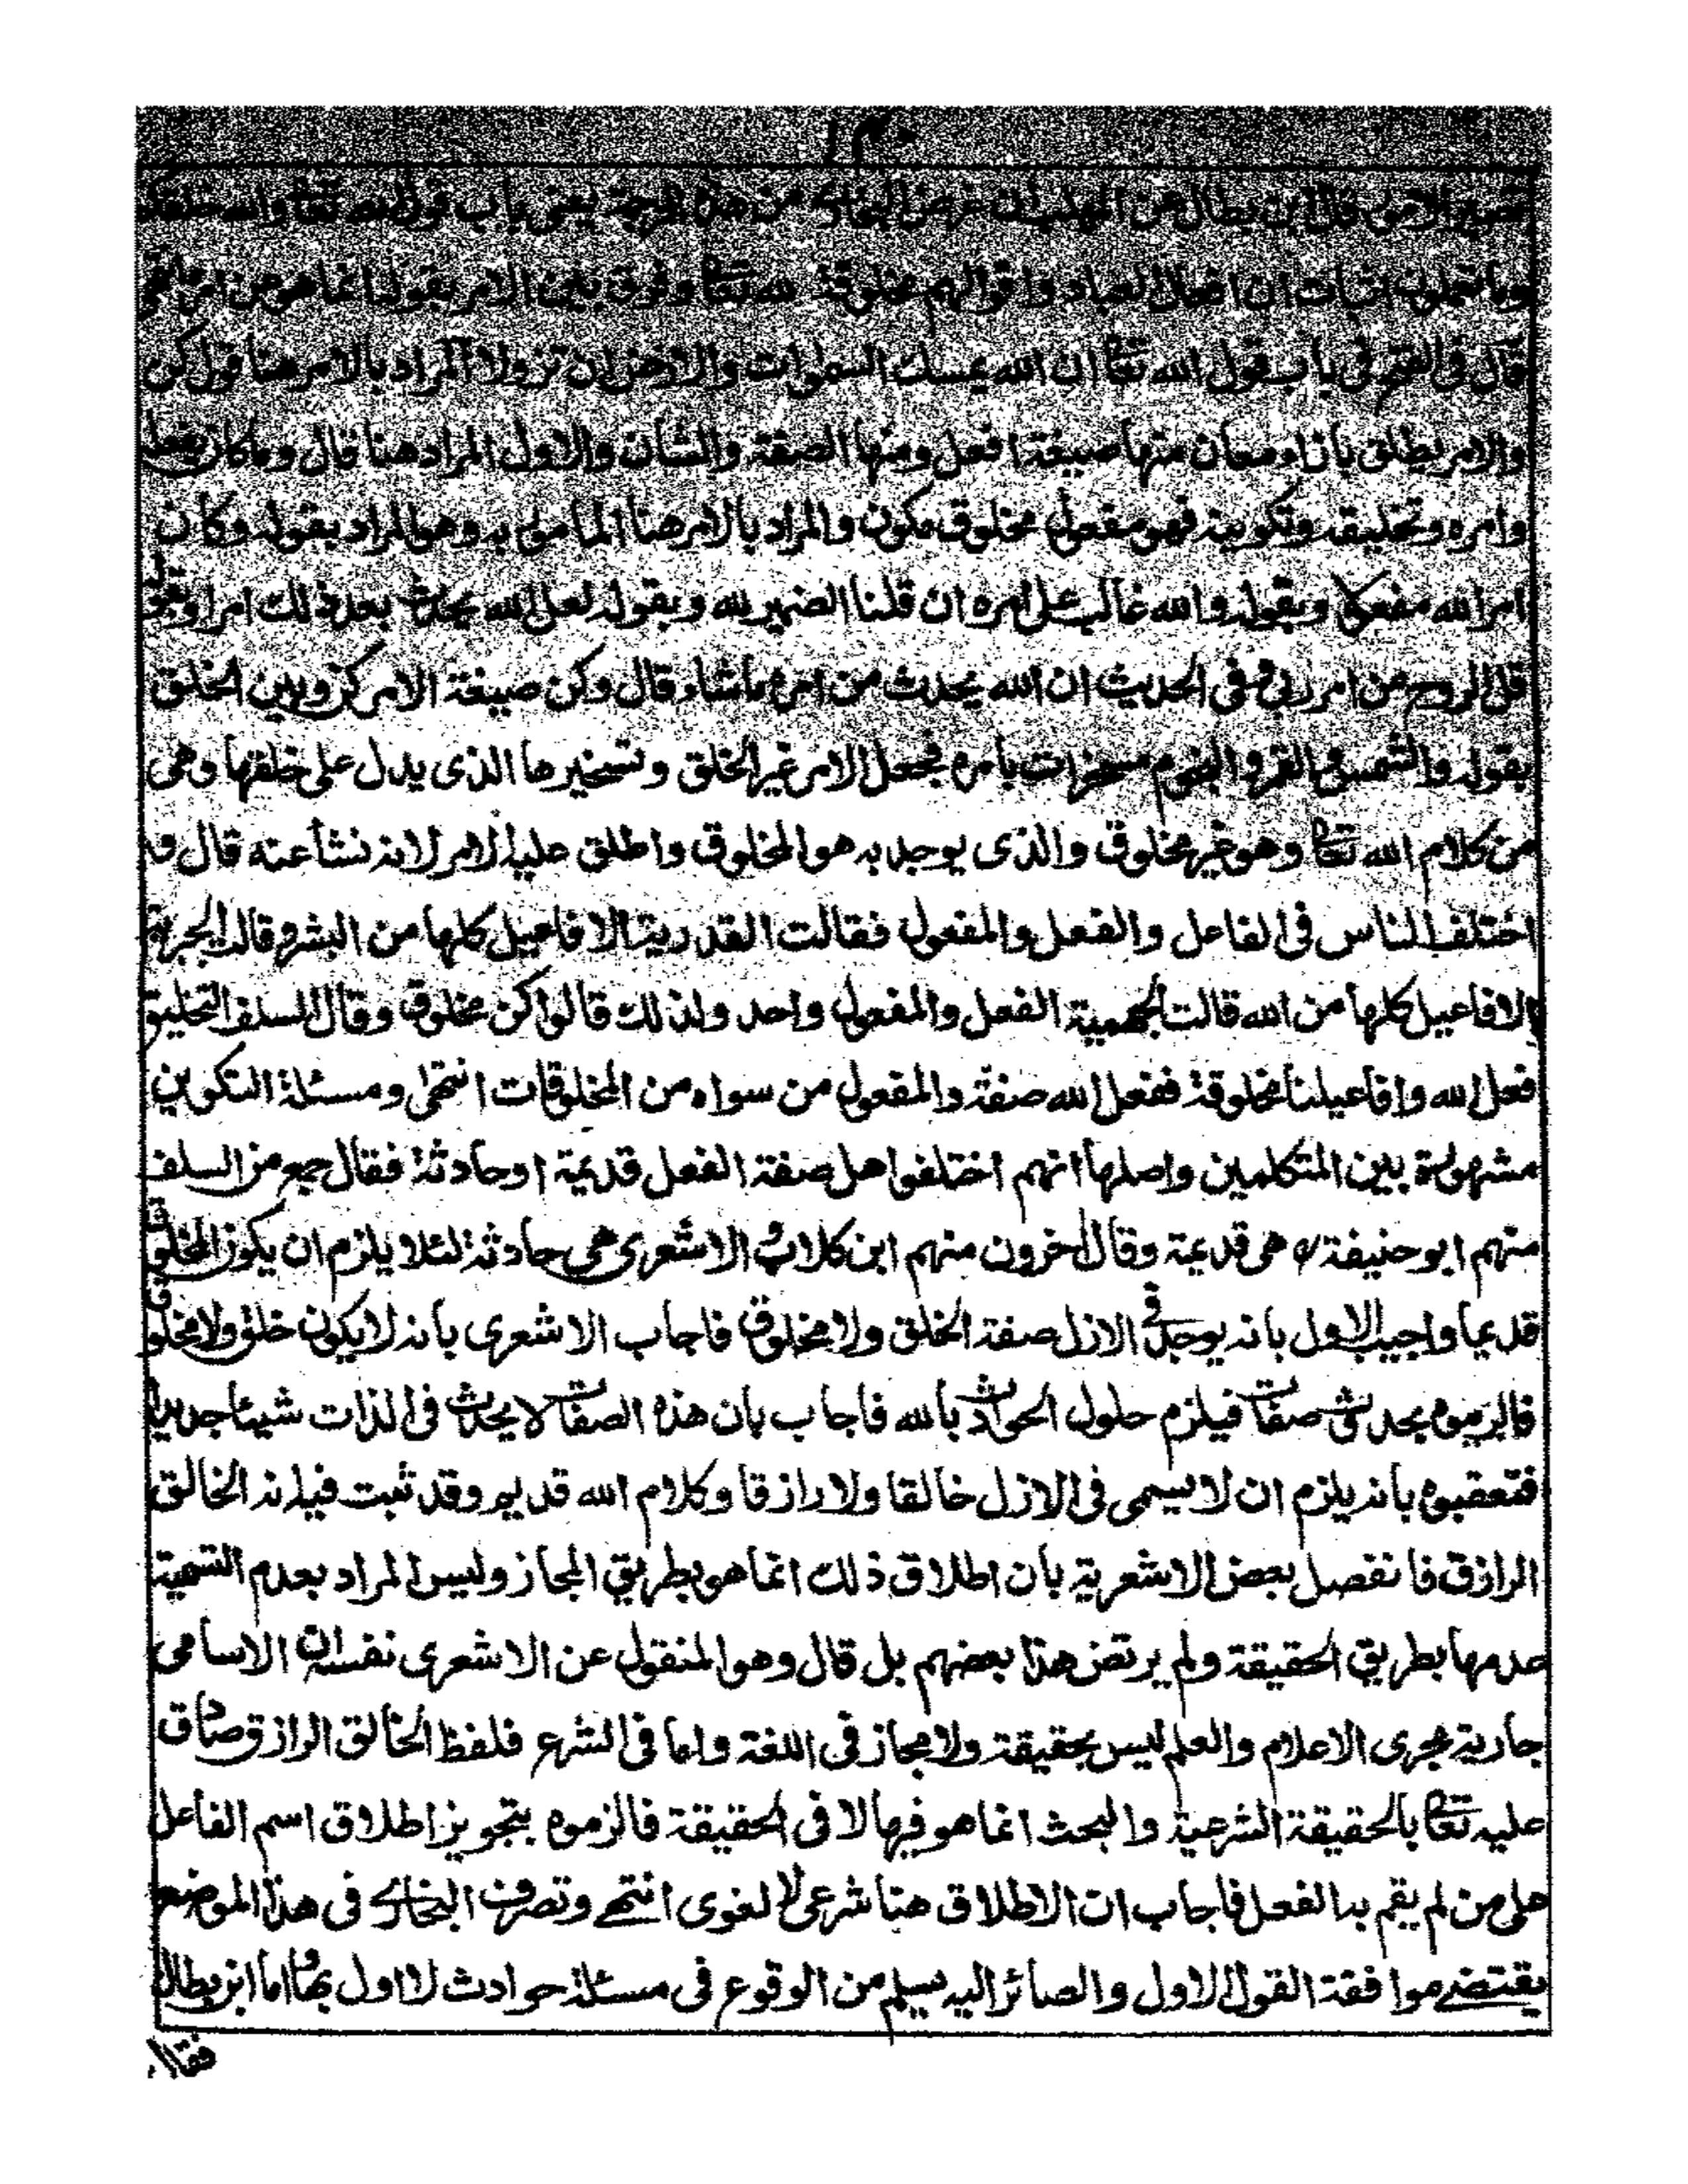 تصيير الامور قال ابن بطال عن المهلب ان غرض البخارى من هذه الترجمة يعنى باب قول الله تعا والله خلقكم
وما تعملون اثبات ان افعال العباد واقوالهم مخلوقة لله تعا وفرق بين الامر بقوله انما هو من
قال فى الفتح فى باب قول الله تعا ان الله يمسك السموات والارض ان تزولا المراد بالامر هنا قول كن
والامر يطلق بازاء معان منها صيغة افعل ومنها الصفة والشان والاول المراد هنا قال وما كان بفعله
وامره وتخليقه وتكوينه فهو مفعول مخلوق مكون والمراد بالامر هنا المامور به وهو المراد بقوله وكان
امر الله مفعولا وبقوله والله غالب على امره ان قلنا الضمير لله وبقوله لعل الله يحدث بعد ذلك امرا وبقوله
قل الروح من امر ربى وفى الحديث ان الله يحدث من امره ما شاء قال وكن صيغة الامر كن وبين الخلق
بقوله والشمس والقمر والنجوم مسخرات بامره فجعل الامر غير الخلق وتسخيرها الذى يدل على خلقها وهى
من كلام الله تعا وهو غير مخلوق والذى يوجد به هو المخلوق واطلق عليه الامر لانه نشأ عنه قال و
اختلف الناس فى الفاعل والفعل والمفعول فقالت القدرية الافاعيل كلها من البشر وقالت الجبرية
الافاعيل كلها من الله قالت الجهمية الفعل والمفعول واحد ولذلك قالوا كن مخلوق وقال السلف التخليق
فعل الله وافاعيلنا مخلوقة ففعل الله صفة والمفعول من سواه من المخلوقات انتهى ومسئلة التكوين
مشهورة بين المتكلمين واصلها انهم اختلفوا هل صفة الفعل قديمة او حادثة فقال جمع من السلف
منهم ابو حنيفة رح هى قديمة وقال اخرون منهم ابن كلاب و الاشعرى هى حادثة لئلا يلزم ان يكون المخلوق
قديما واجيب الاول بانه يوجد فى الازل صفة الخلق ولا مخلوق فاجاب الاشعرى بانه لا يكون خلق ولا مخلوق
فالزموه بحدوث صفات فيلزم حلول الحوادث بالله فاجاب بان هذه الصفات لا يحدث فى الذات شيئا جديدا
فتعقبوه بانه يلزم ان لا يسمى فى الازل خالقا ولا رازقا وكلام الله قديم وقد ثبت فيه انه الخالق
الرازق فانفصل بعض الاشعرية بان اطلاق ذلك انما هو بطريق المجاز وليس المراد بعدم التسمية
عدمها بطريق الحقيقة ولم يرتض هذا بعضهم بل قال وهو المنقول عن الاشعرى نفسه ان الاسامى
جارية مجرى الاعلام والعلم ليس بحقيقة ولا مجاز فى اللغة واما فى الشرع فلفظ الخالق الرازق صادق
عليه تعا بالحقيقة الشرعية والبحث انما هو فيها لا فى الحقيقة فالزموه بتجويز اطلاق اسم الفاعل
على من لم يقم به الفعل فاجاب ان الاطلاق هنا شرعى لا لغوى انتهى وتصرف البخارى فى هذا الموضع
يقتضى موافقة القول الاول والصائر اليه يسلم من الوقوع فى مسئلة حوادث لا اول لها واما ابن بطال
فقال